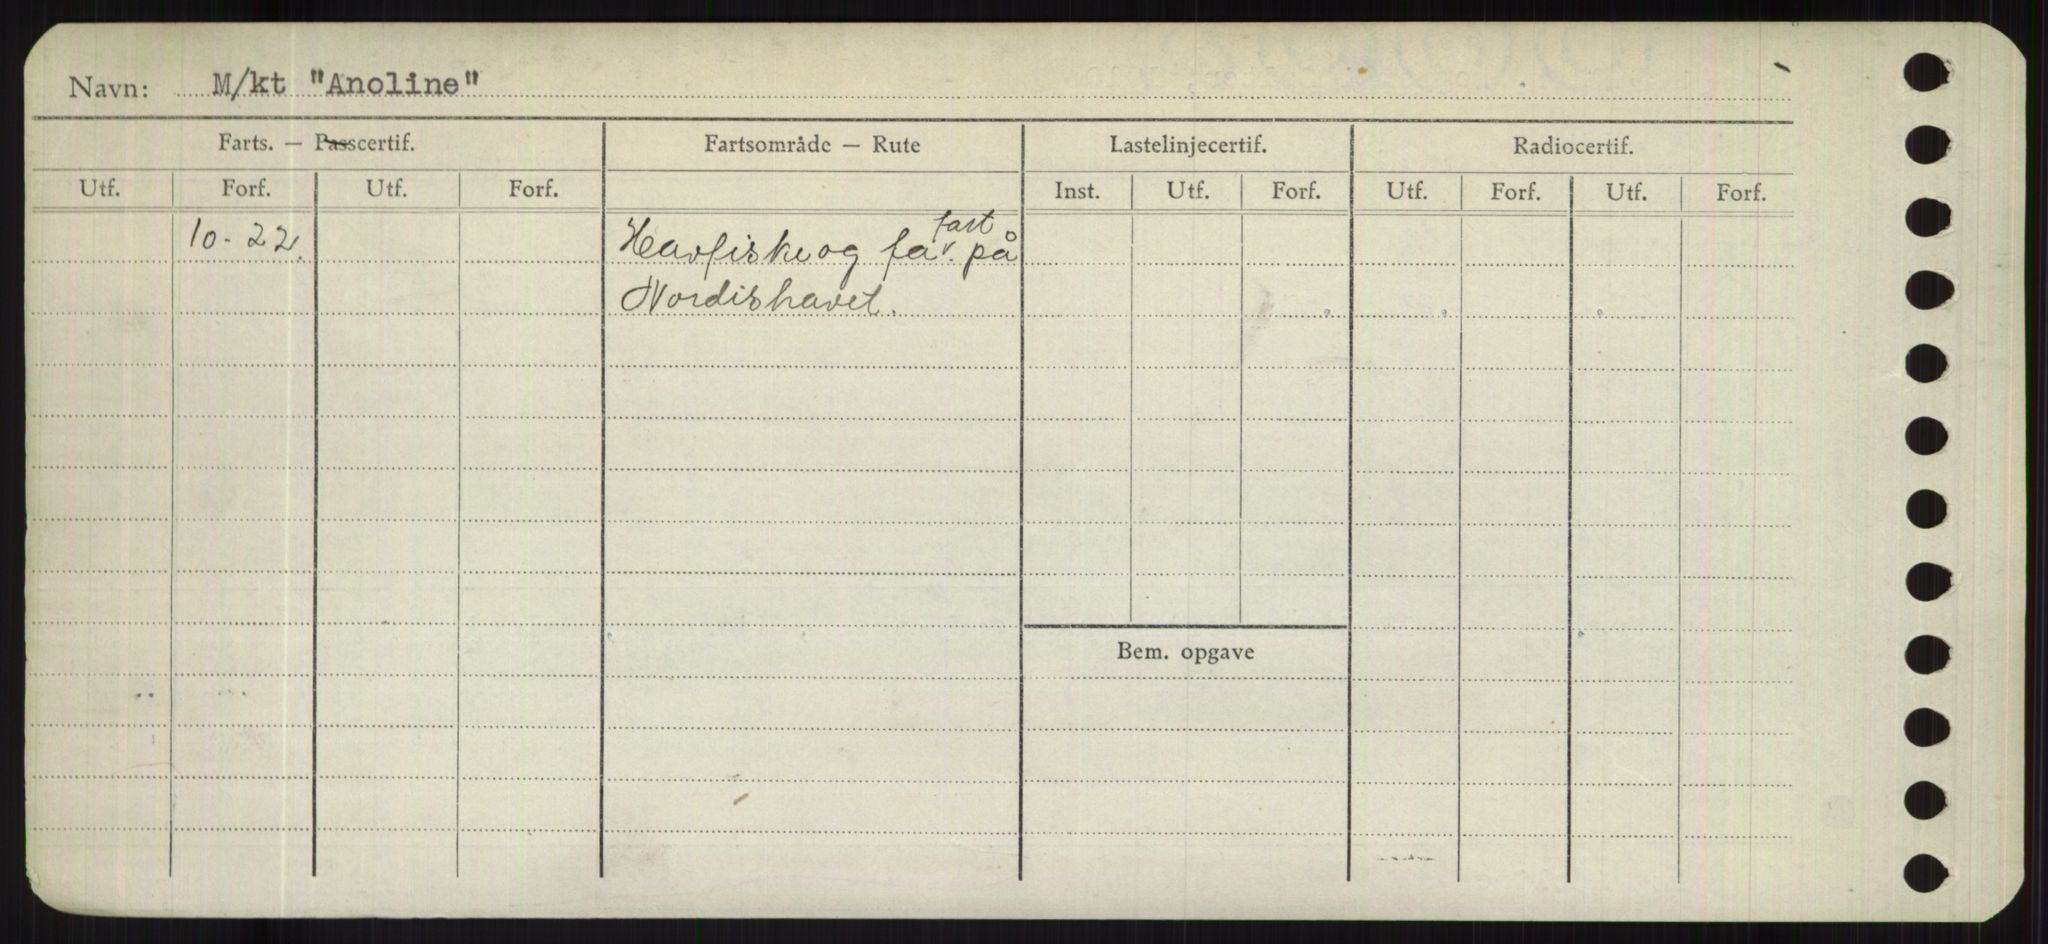 Navn: M/kt "Anoline"
Farts. — Passcertif. Fartsområde — Rute Lastelinjecertif. Radiocertif.
Utf. Forf. Utf. Forf. Inst. Utf. Forf. Utf. Forf. Utf. Forf.
fart
10-22. Havfiske og fa v. på
Nordishavet.
Bem. opgave